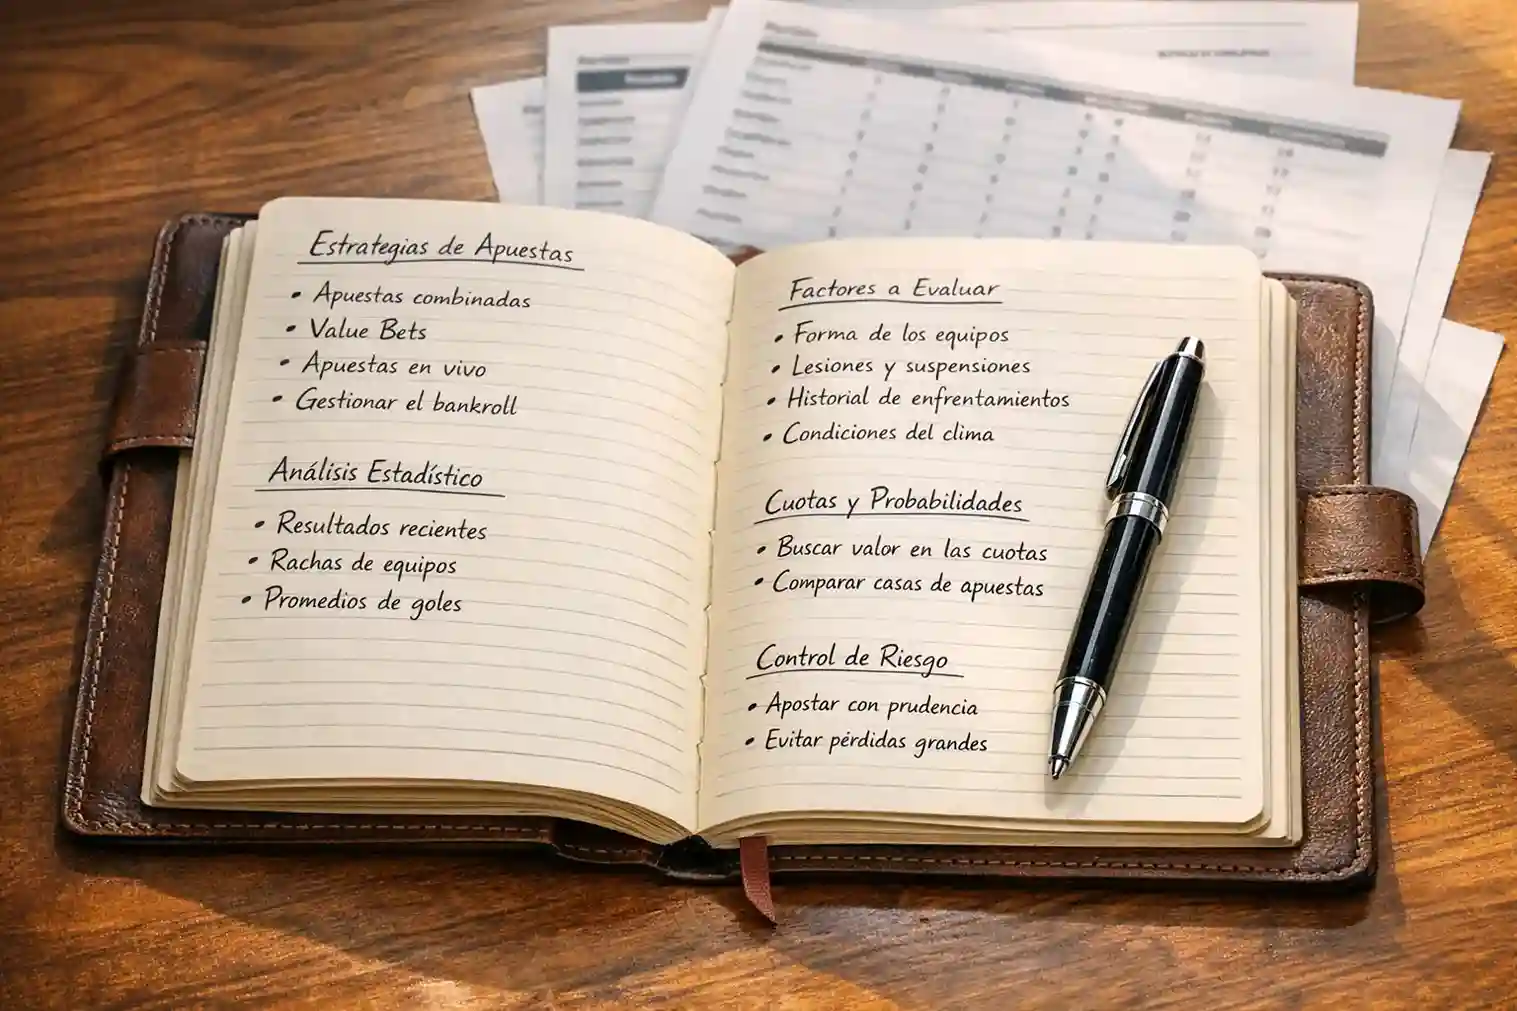 Estrategias de Apuestas
• Apuestas combinadas
• Value Bets
• Apuestas en vivo
• Gestionar el bankroll
Análisis Estadístico
• Resultados recientes
• Rachas de equipos
• Promedios de goles
Factores a Evaluar
• Forma de los equipos
• Lesiones y suspensiones
• Historial de enfrentamientos
• Condiciones del clima
Cuotas y Probabilidades
• Buscar valor en las cuotas
• Comparar casas de apuestas
Control de Riesgo
• Apostar con prudencia
• Evitar pérdidas grandes